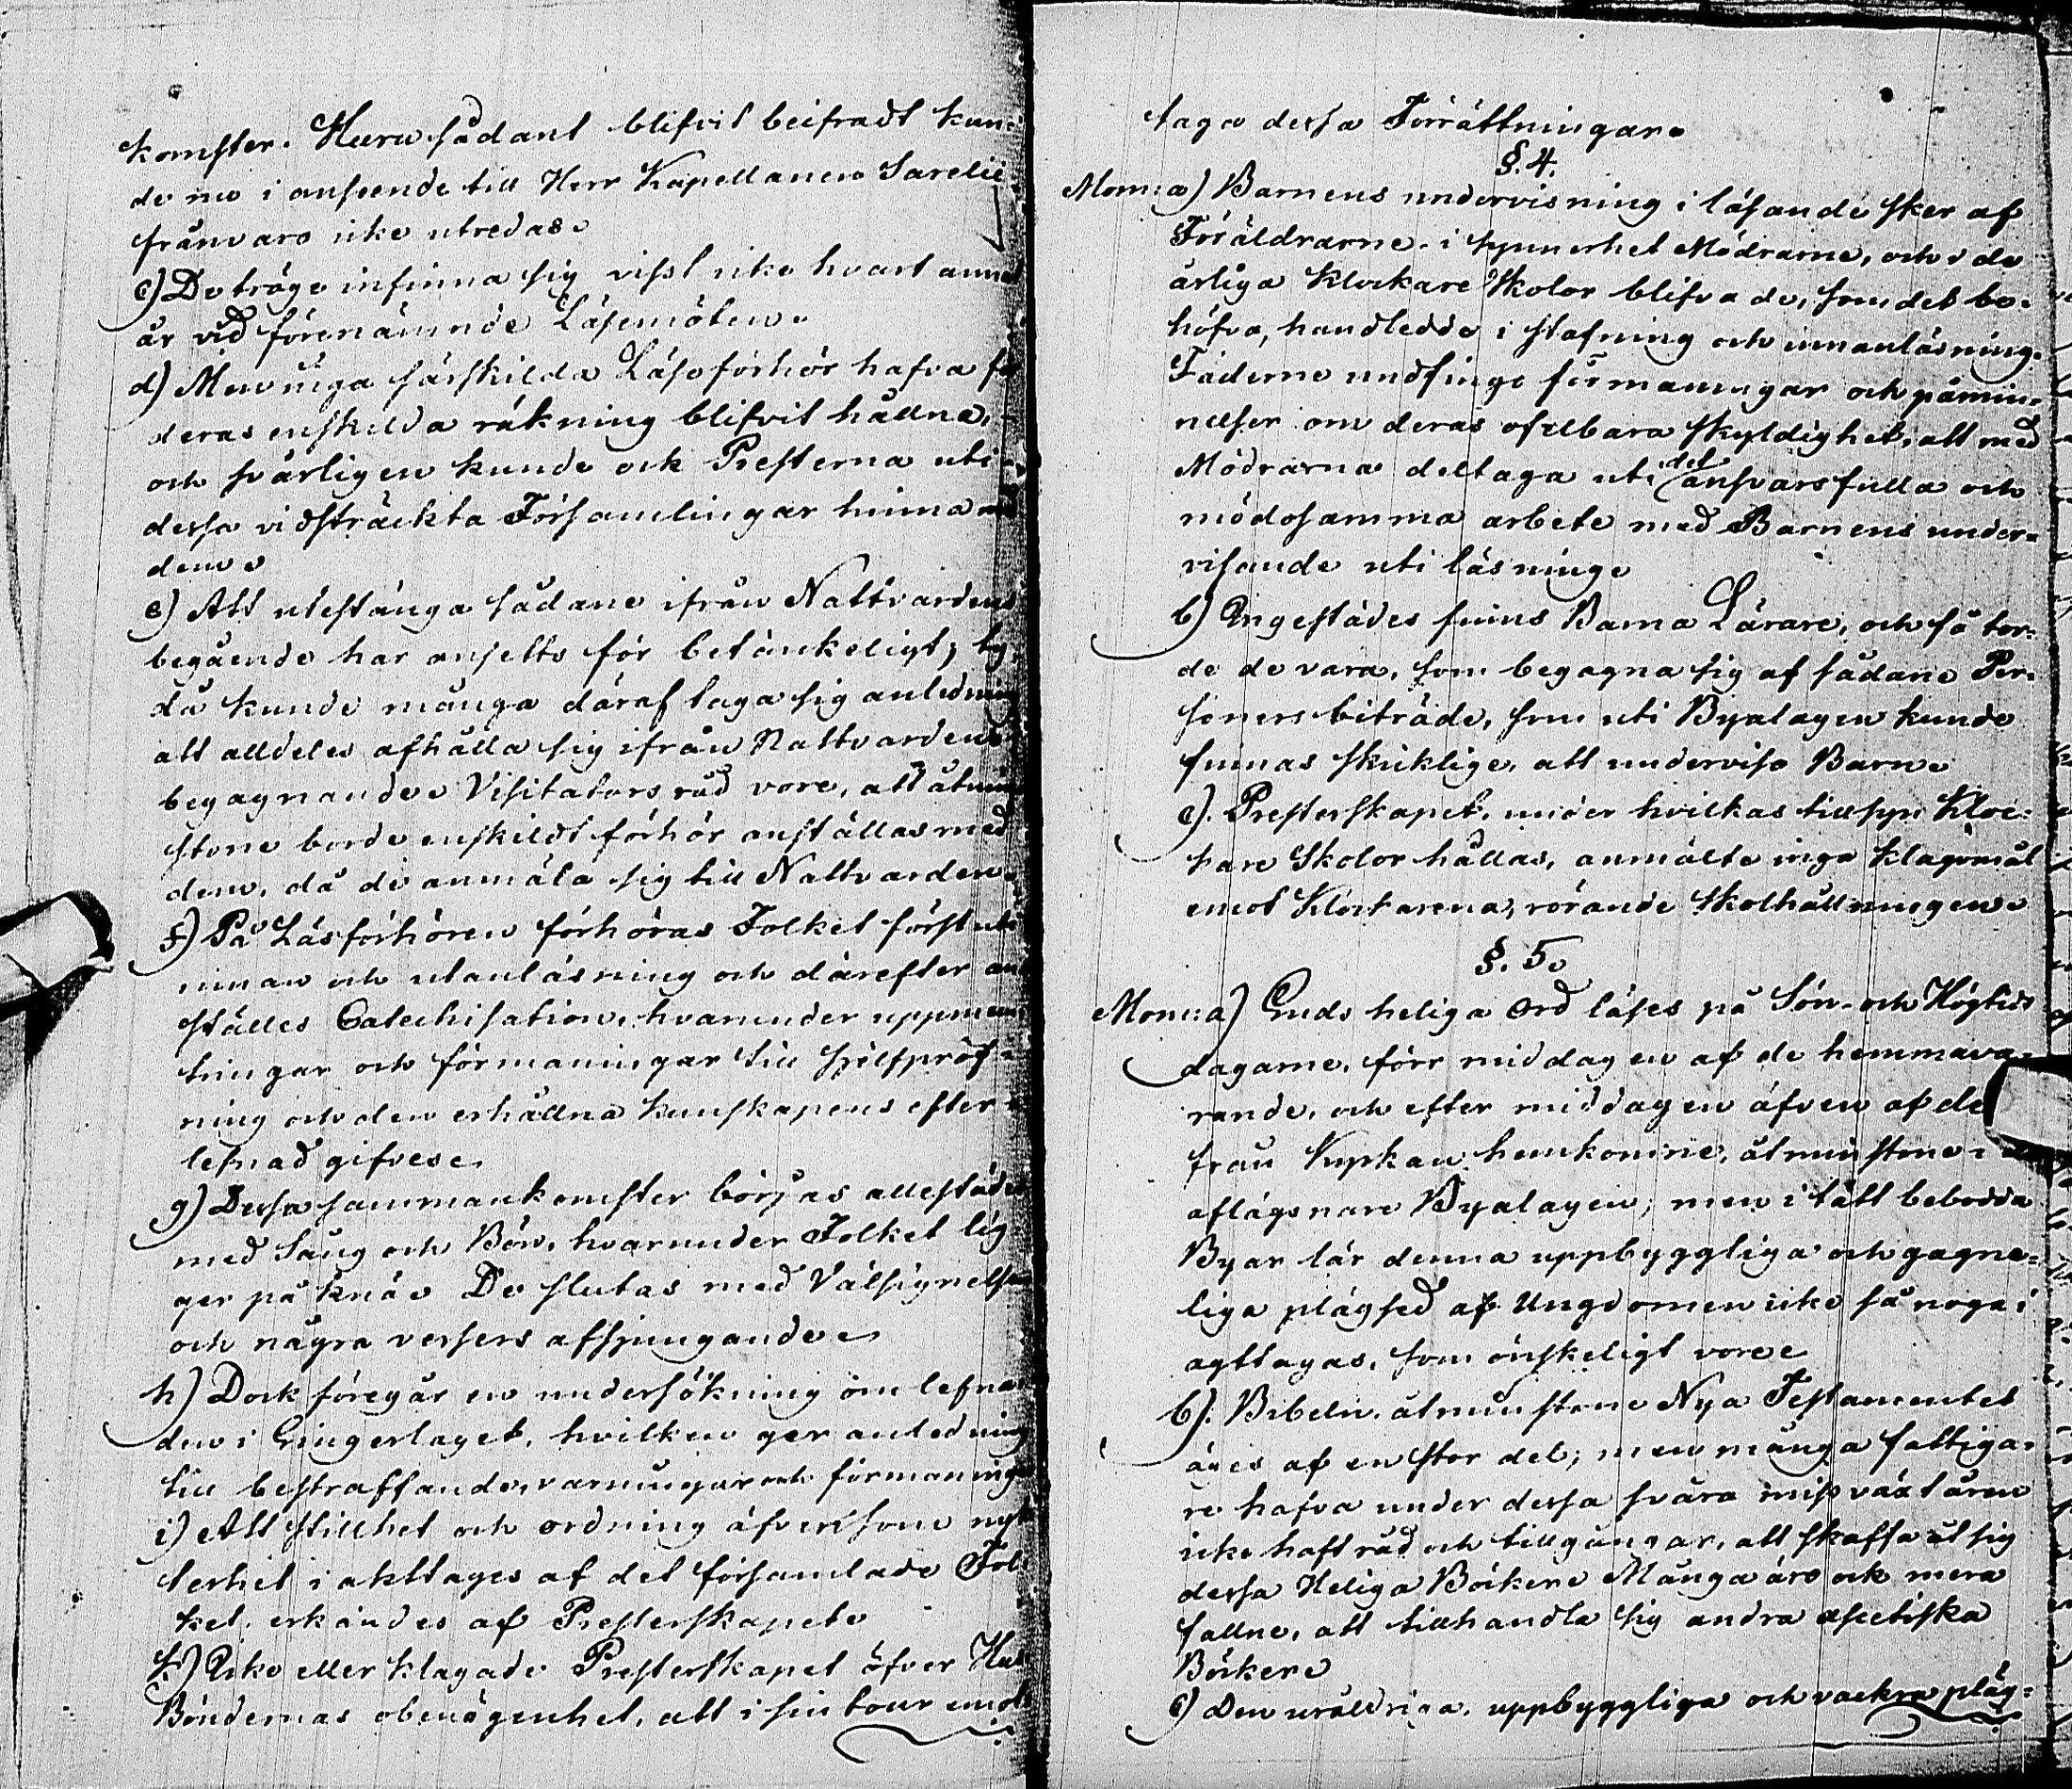 komster. Huru sådant blifvit beifradt kun-
de nu i anseende till Herr Kapellanen Sarelii
frånvaro icke utredas.
c) De tröge infinna sig visst icke hvart annat
år vid förenämnde Läsemöten.
d) Men inga särskilda Läseförhör hafva för
deras enskilda räkning blifvit hållna,
och svårligen kunde ock Presterna uti
dessa vidsträckta Församlingar hinna med
dem.
e) Att utestänga sådane ifrån Nattvardens
begående har ansetts för betänkeligt; ty
då kunde många däraf taga sig anledning
att alldeles afhålla sig ifrån Nattvardens
begagnande. Visitators råd vore, att åtmin
stone borde enskildt förhör anställas med
dem, då de anmäla sig till Nattvarden.
f) På Läsförhören förhöras Folket först uti
innan och utanläsning och därefter an
ställes Catechisation, hvarunder uppmun
tringar och förmaningar till sjelfpröf-
ning och den erhållna kunskapens efter-
lefnad gifves.
g) Dessa sammankomster börjas allestädes
med Sång och Bön, hvarunder Folket lig-
ger på knä. De slutas med Välsignelsen
och några versers afsjungande.
h) Dock föregår en undersökning om lefna
den i Gingerlaget, hvilken ger anledning
till bestraffande, varningar och förmaninga
i) All stillhet och ordning äfvensom nyk
terhet iakttages af det församlade Fol
ket, erkändes af Presterskapet.
k) Icke eller klagade Presterskapet öfver Hus
Böndernas obenägenhet, att i sin tour emot
taga dessa Förrättningar.
§. 4.
Mom: a) Barnens undervisning i läsande sker af
Föräldrarne, i synnerhet Mödrarne, och vid de
årliga Klockare Skolor blifva de, som det be-
höfva, handledde i stafning och innanläsning.
Fäderne undfingo förmaningar och påmin-
nelser om deras ofelbara skyldighet, att med
Mödrarna deltaga uti det ansvarsfulla och
mödosamma arbete med Barnens under-
visande uti läsning.
b) Ingestädes finns Barna Lärare, och få tor-
de de vara, som begagna sig af sådane Per-
soners biträde, som uti Byalagen kunde
finnas skicklige, att undervisa Barn.
c). Presterskapet, under hvilkas tillsyn Kloc-
kare Skolor hållas, anmälte inga klagomål
emot Klockarena, rörande Skolhållningen.
§. 5.
Mom: a) Guds heliga Ord läses på Sön- och Högtids
dagarne, förr middagen af de hemmava-
rande, och efter middagen äfven af de
från Kyrkan hemkomne, åtminstone i
aflägsnare Byalagen; men i tätt bebodda
Byar lär denna uppbyggliga och gagne-
liga plägsed af Ungdomen icke så noga i
agttagas, som önskeligt vore.
b). Bibeln, åtminstone Nya Testamentet
äges af en stor del; men många fattiga-
re hafva under dessa svåra missväxtåren
icke haft råd och tillgångar, att skaffa åt sig
dessa Heliga Böcker. Många äro ock mera
fallne, att tillhandla sig andra ascetiska
Böcker.
c) Den uråldriga, uppbyggliga och vackra pläg-